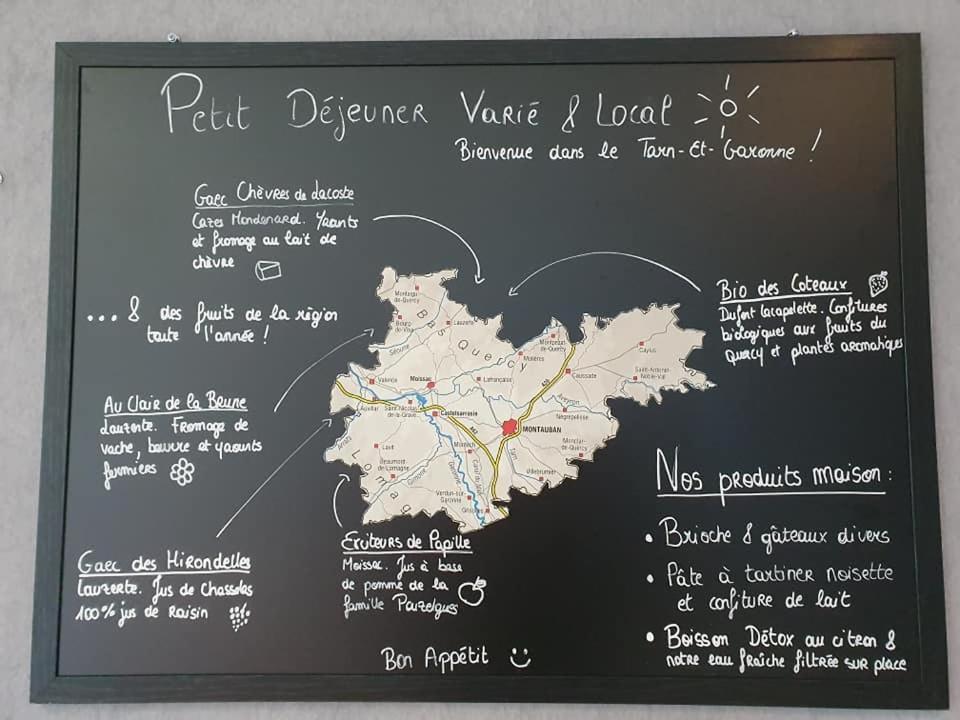 Petit Déjeuner Varié & Local
Bienvenue dans le Tarn-Et-Garonne !
Gaec Chèvres de Lacoste
Cazes Mondenard. Yaourts
et fromage au lait de
chèvre
... & des fruits de la région
toute l'année !
Au Clair de la Beune
Lauzerte. Fromage de
vache, beurre et yaourts
fermiers
Gaec des Hirondelles
Lauzerte. Jus de Chasselas
100% jus de Raisin
Exciteurs de Papille
Moissac. Jus à base
de pomme de la
famille
Bio des Coteaux
Dufort Lacapelette. Confitures
biologiques aux fruits du
Quercy et plantes aromatiques
Nos produits maison :
• Brioche & gâteaux divers
• Pâte à tartiner noisette
et confiture de lait
• Boisson Détox au citron &
notre eau fraîche filtrée sur place
Bon Appétit
Montaigu-
de-Quercy
Bourg-
de-Visa
Lauzerte
Bas Quercy
Séoune
Molières
Montpezat-
de-Quercy
Caylus
Saint-Antonin-
Noble-Val
Caussade
Valence
Moissac
Lafrançaise
A20
Auvillar
Saint-Nicolas-
de-la-Grave
Castelsarrasin
Aveyron
Nègrepelisse
MONTAUBAN
Arrats
Lavit
Montech
Tarn
Monclar-
de-Quercy
Beaumont-
de-Lomagne
Gimone
Garonne
Villebrumier
Verdun-sur-
Garonne
Grisolles
Lomagne